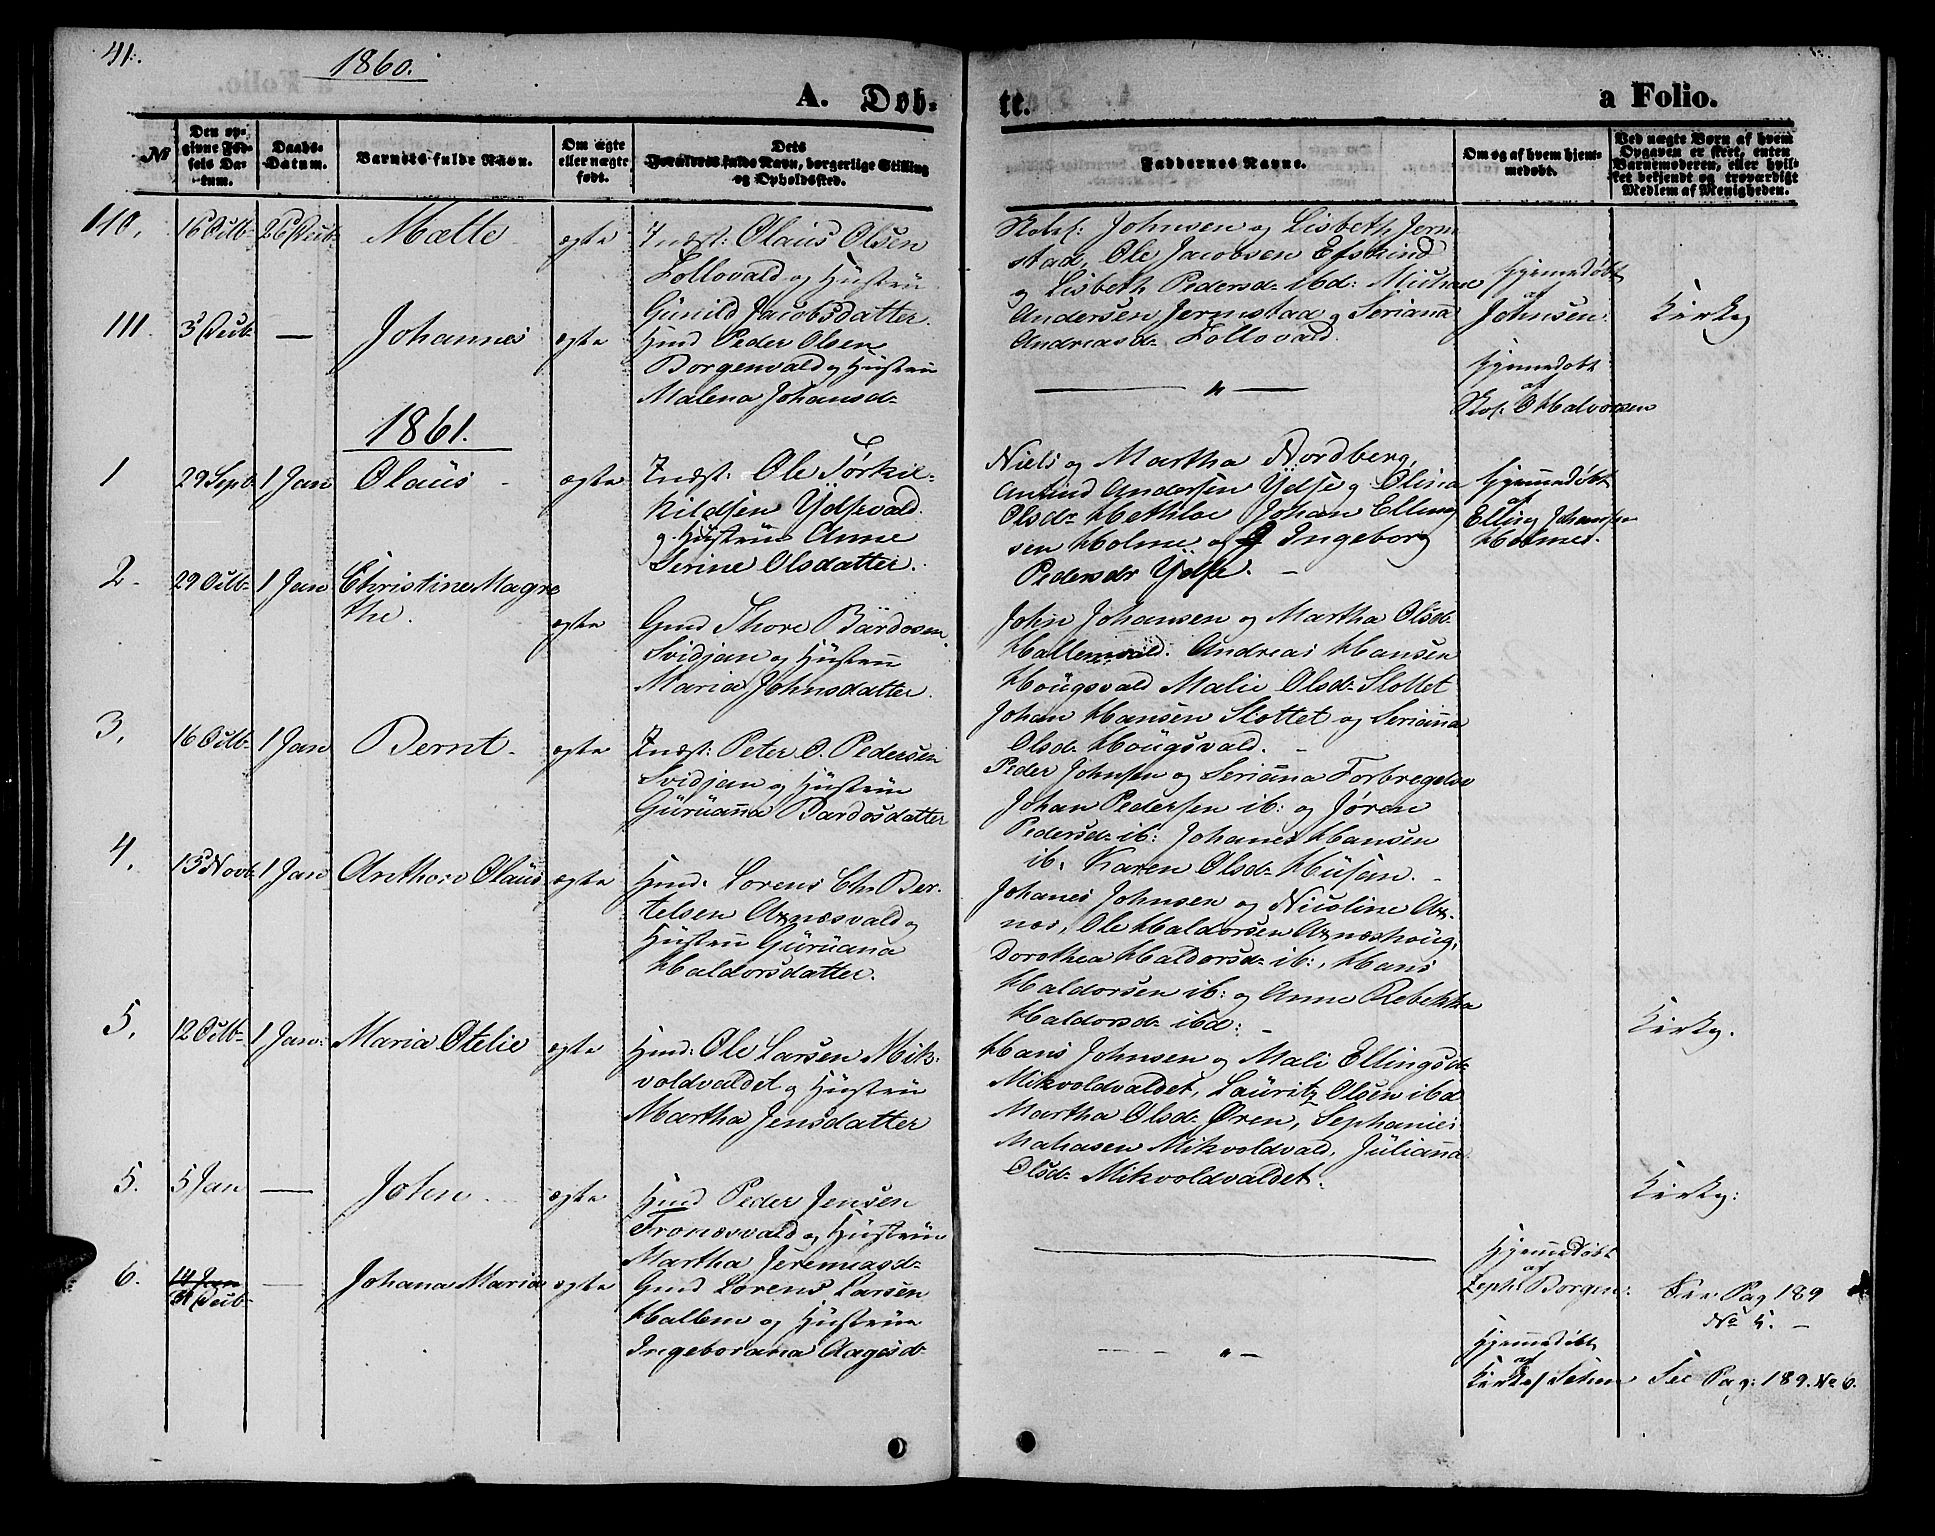 41.
1860.
A. Døb-
te.
a Folio.
№
Den op-
givne Fød-
sels Da-
tum.
Daabs-
Datum.
Barnets fulde Navn.
Om ægte
eller uægte
født.
Dets
Forældres fulde Navn, borgerlige Stilling
og Opholdssted.
Faddernes Navne.
Om og af hvem hjem-
medøbt.
Ved uægte Børn af hvem
Opgaven er skeet, enten
Barnemoderen, eller hvil-
ket bekjendt og troværdigt
Medlem af Menigheden.
110. 16 Octb 26 Decb Mætte ægte Indst: Olaus Olsen
Lollovald og Hustru
Gunild Jacobsdatter.
Johnsen og Lisbeth Jerm
stad, Ole Jacobsen
og Lisbeth Pedersd- ibd:
Andersen Jermstad og Seriana
Andreasd- Lollovald.
Hjemmedøbt
af
Johnsen.
111. 3 Decb — Johannes ægte Hmd Peder Olsen
Borgenvald og Hustru
Malena Johansd-
— " —
Hjemmedøbt
af
O Halvorsen
Kirkeg
1861.
1 29 Sepb 1 Jan Olaus - ægte Indst: Ole Torkil-
kildsen Ydsevald.
og Hustrue Anne
Serine Olsdatter.
Niels og Martha Nordberg,
Andersen Ydse og Olina
Olsd- Johan Elling
sen Holme og Ingeborg
Pedersdr Ydse. -
Hjemmedøbt
af
Elling Johansen
Holmes.
2. 29 Octb- 1 Jan Christine Magre
the. ægte Gmd Thore Bårdosen
Svidjan og Hustru
Maria Johnsdatter.
John Johansen og Martha Olsd-
Hallemvald. Andreas Hansen
Hougsvald Malie Olsd- Slottet
Johan Hansen Slottet og Serianna
Olsd- Hougsvald. -
3. 16 Octb- 1 Jan Bernt - ægte Indst: Peter O. Pedersen
Svidjan og Hustrue
Guruanna Bardosdatter
Peder Johnsen og Serianna Forbregdsv
Johan Pedersen ib: og Jøren
Pedersd- ib: Johanes Hansen
ib. Karen Olsd- Husan. -
4. 13 Novb 1 Jan Anthon Olaus ægte Hmd: Lorens Chr Ber-
telsen Axnæsvald og
Hustru Guruana
Haldorsdatter.
Johanes Johnsen og Nicoline Ax-
næs, Ole Haldorsen Axnæshoug,
Dorothea Haldorsd- ib:, Hans
Haldorsen ib: og Anne Rebekka
Haldorsd- ibd: -
5. 12 Octb- 1 Jan: Maria Otelie ægte Hmd: Ole Larsen Mik-
voldvaldet og Hustru
Martha Jensdatter
Hans Johnsen og Mali Ellingsd-
Mikvoldvaldet, Lauritz Olsen ibd
Martha Olsd- Øren, Sephanies
Mathasen Mikvoldvald, Julianna
Olsd- Mikvoldvaldet.
Kirkeg.
5. 5 Jan — John - ægte Hmd Peder Jensen
Tronæsvald og Hustrue
Martha Jeremiasd-
Hjemmedøbt
af
Zeph: Borgen:
Kirkeg:
See Pag 189
No 4. -
6. 14 Jan
31 Decb- — Johana Maria ægte Gmd Lorens Larsen
Hallem og Hustrue
Ingeborana Aagesd-
- - " -
Hjemmedøbt
af
See Pag: 189. No 6.